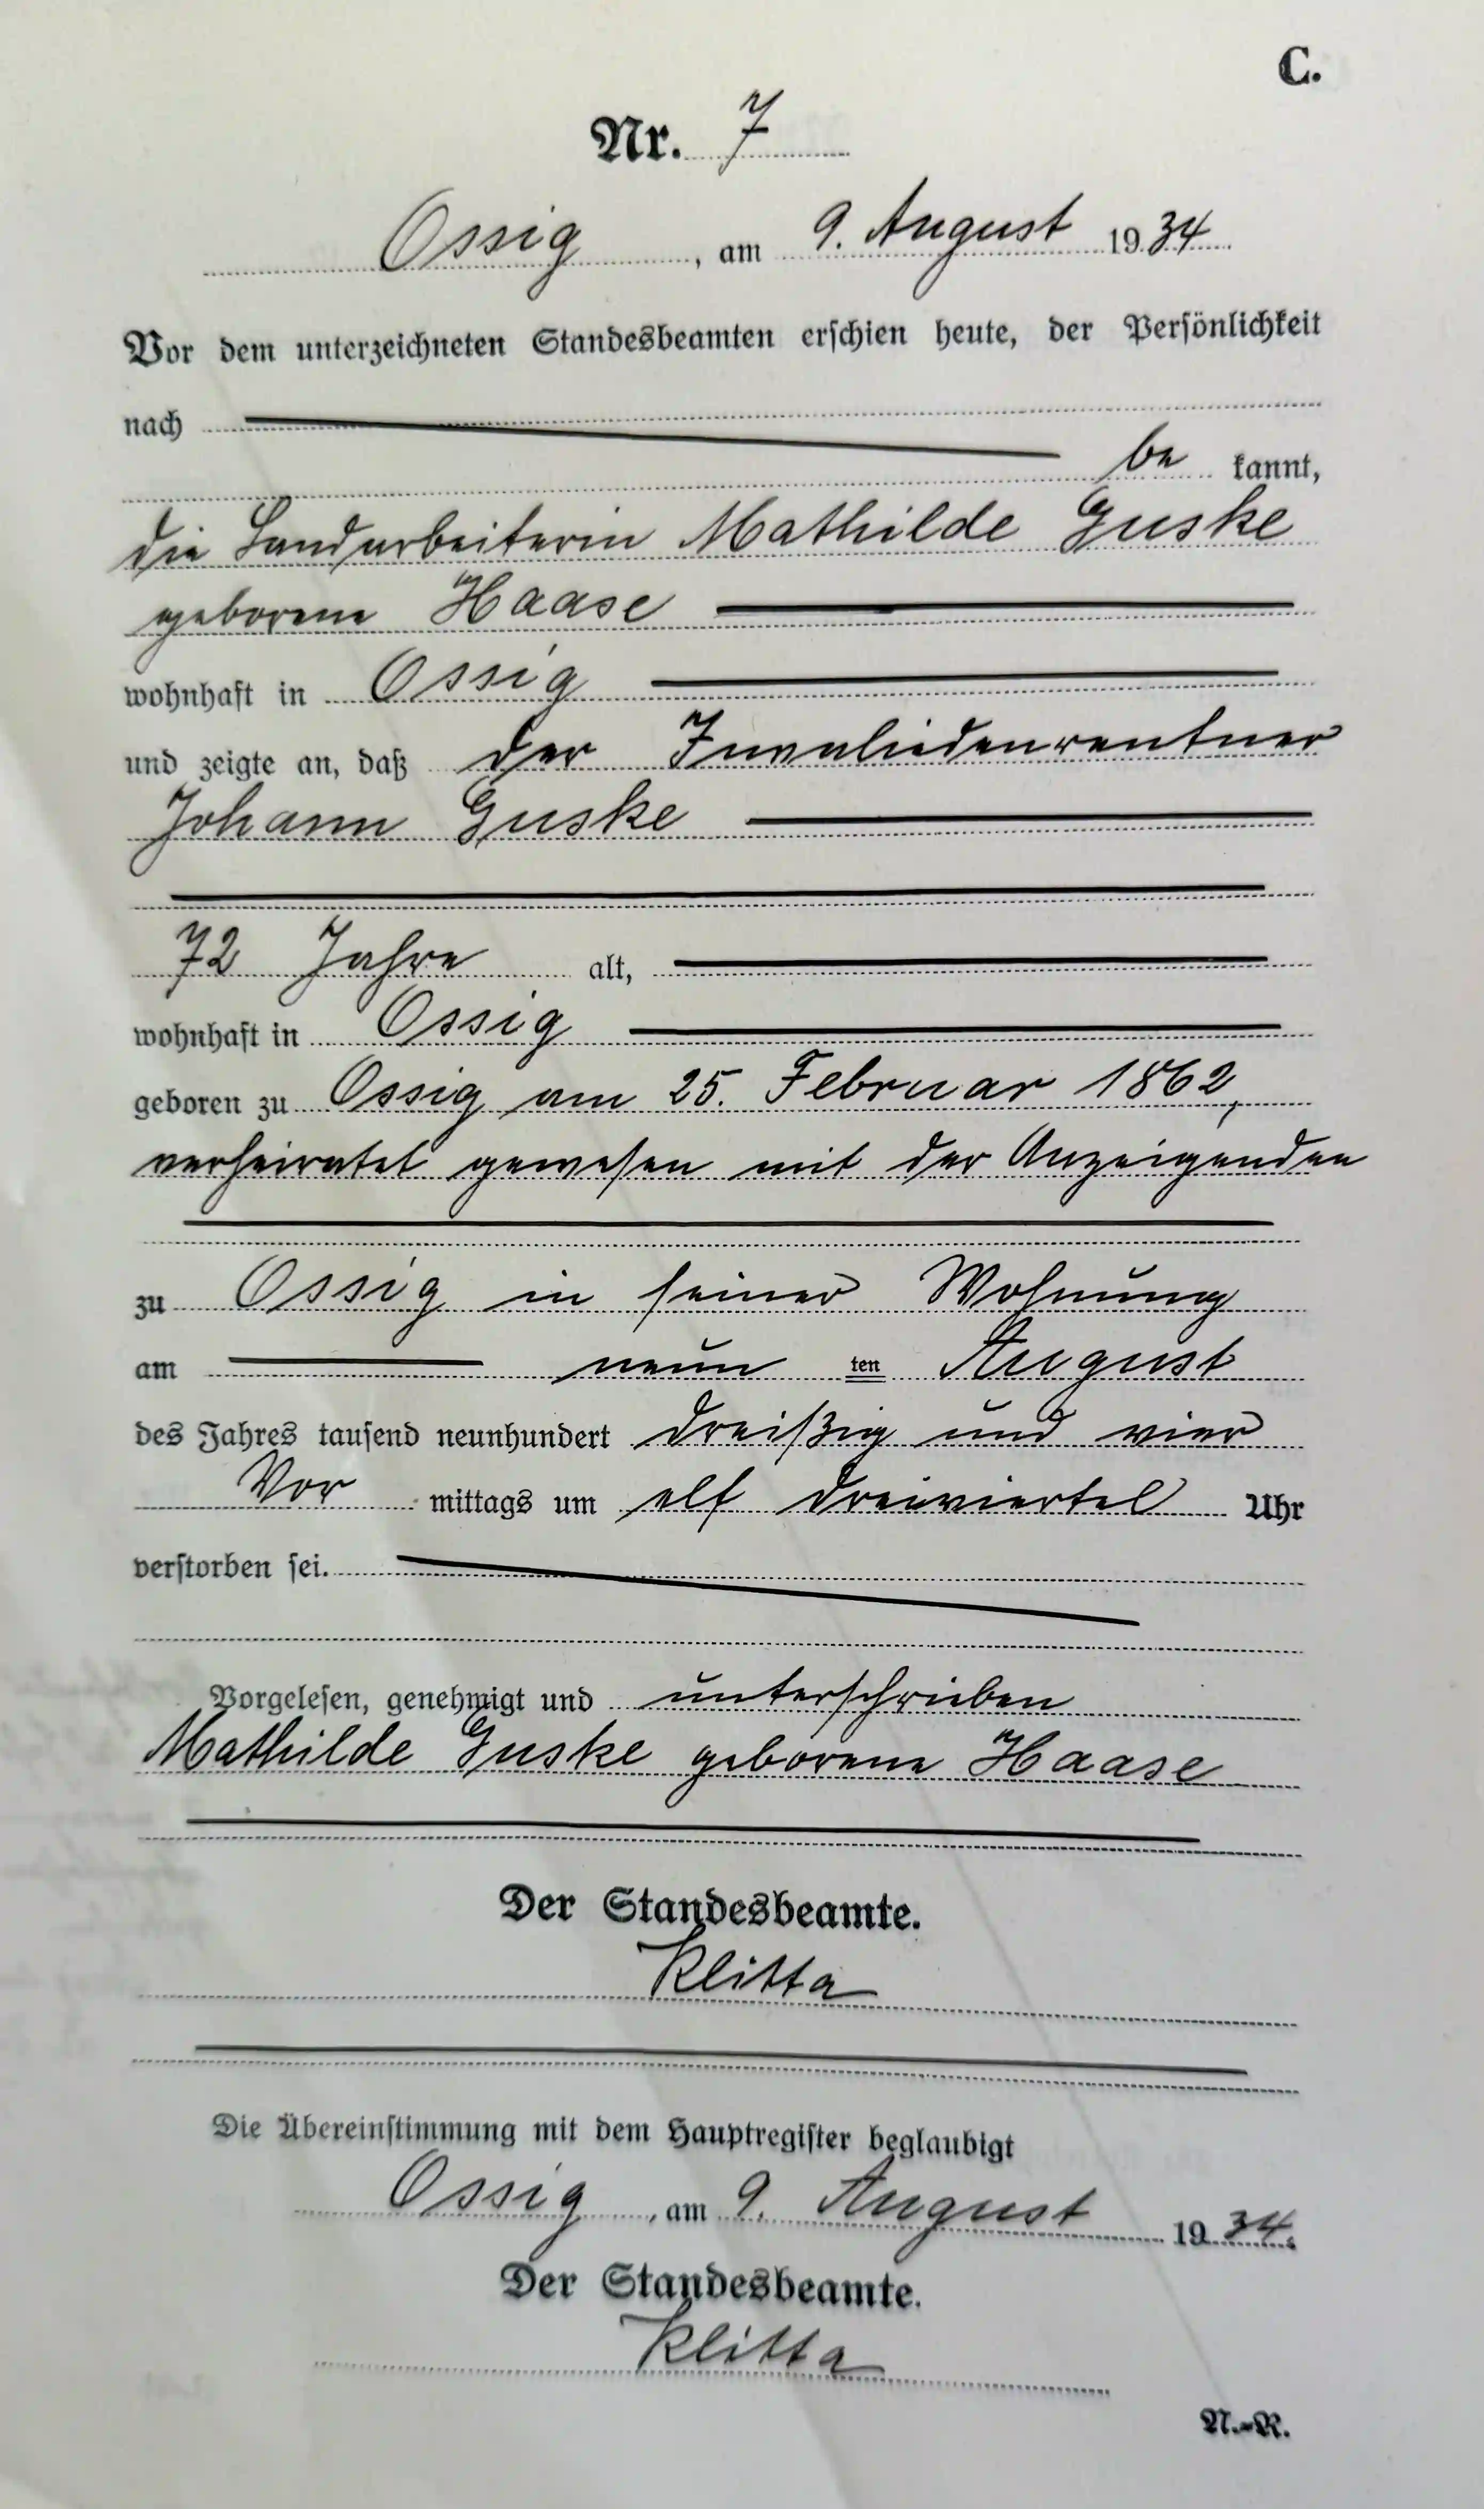 C.
Nr. 7
Ossig, am 9. August 1934
Vor dem unterzeichneten Standesbeamten erschien heute, der Persönlichkeit
nach
be kannt,
die Landarbeiterin Mathilde Guske
geborene Haase
wohnhaft in Ossig
und zeigte an, daß der Invaliedenrentner
Johann Guske
72 Jahre alt,
wohnhaft in Ossig
geboren zu Ossig am 25. Februar 1862,
verheiratet gewesen mit der Anzeigenden
zu Ossig in seiner Wohnung
am neun ten August
des Jahres tausend neunhundert dreißig und vier
Vor mittags um elf dreiviertel Uhr
verstorben sei.
Vorgelesen, genehmigt und unterschrieben
Mathilde Guske geborene Haase
Der Standesbeamte.
Klitta
Die Übereinstimmung mit dem Hauptregister beglaubigt
Ossig, am 9. August 1934.
Der Standesbeamte.
Klitta
N.-R.